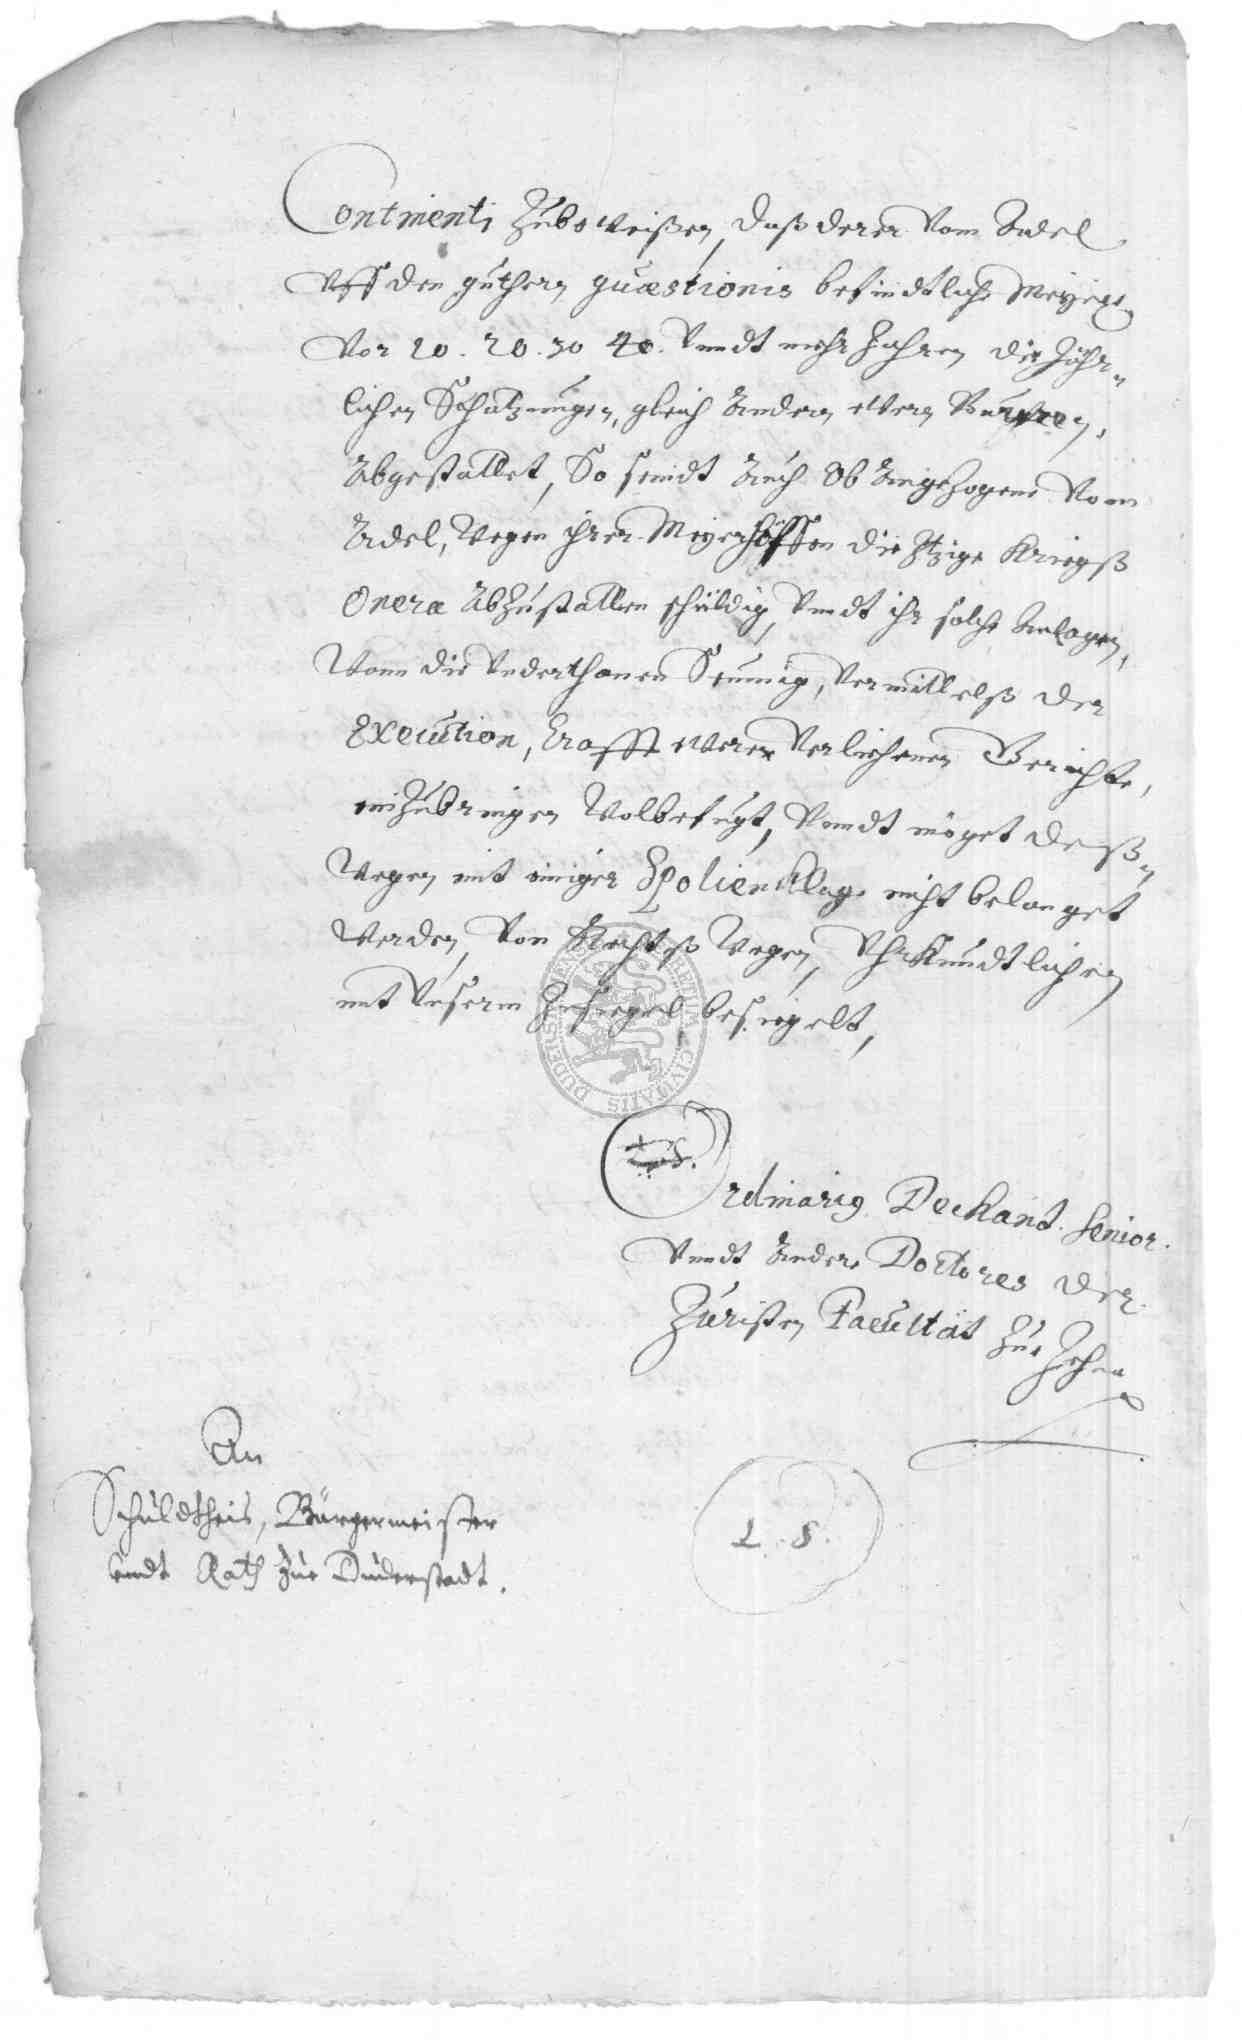 Continenti Zubeweißen, daß derer Vom Adel
Vff den guthern quæstionis befindtliche Meyer
Vor 10. 20. 30 40. Vnndt mehr Jahren die Jähr-
lichen Schatzungen, gleich andern ewern Bürgern,
abgestattet, So seindt auch Ob angezogene Vom
Adel, Wegen ihrer Meyerhöffen die Itzige Kriegß
Onera abzustatten schüldig, Vnndt ihr solche Anlagen,
Wann die Vnderthanen Seumig, Vermittelß der
Execution, Crafft ewerer Verliehenen Gerichte,
einzubringen Wolbefugt, Vnndt möget deß-
Wegen mit einiger Spolienklage nicht belanget
Werden, Von Rechtß Wegen, Vhrkundtlichen
mit Vnserm Insiegel besiegelt,
DUDERSTADIENSIS CIVITATIS
Ordinarius Dechant Senior.
Vnndt andere Doctores der
Juristen Facultät Zue Jehna
An
Schuldtheis, Bürgermeister
vndt Rath zue Duderstadt.
L. S.